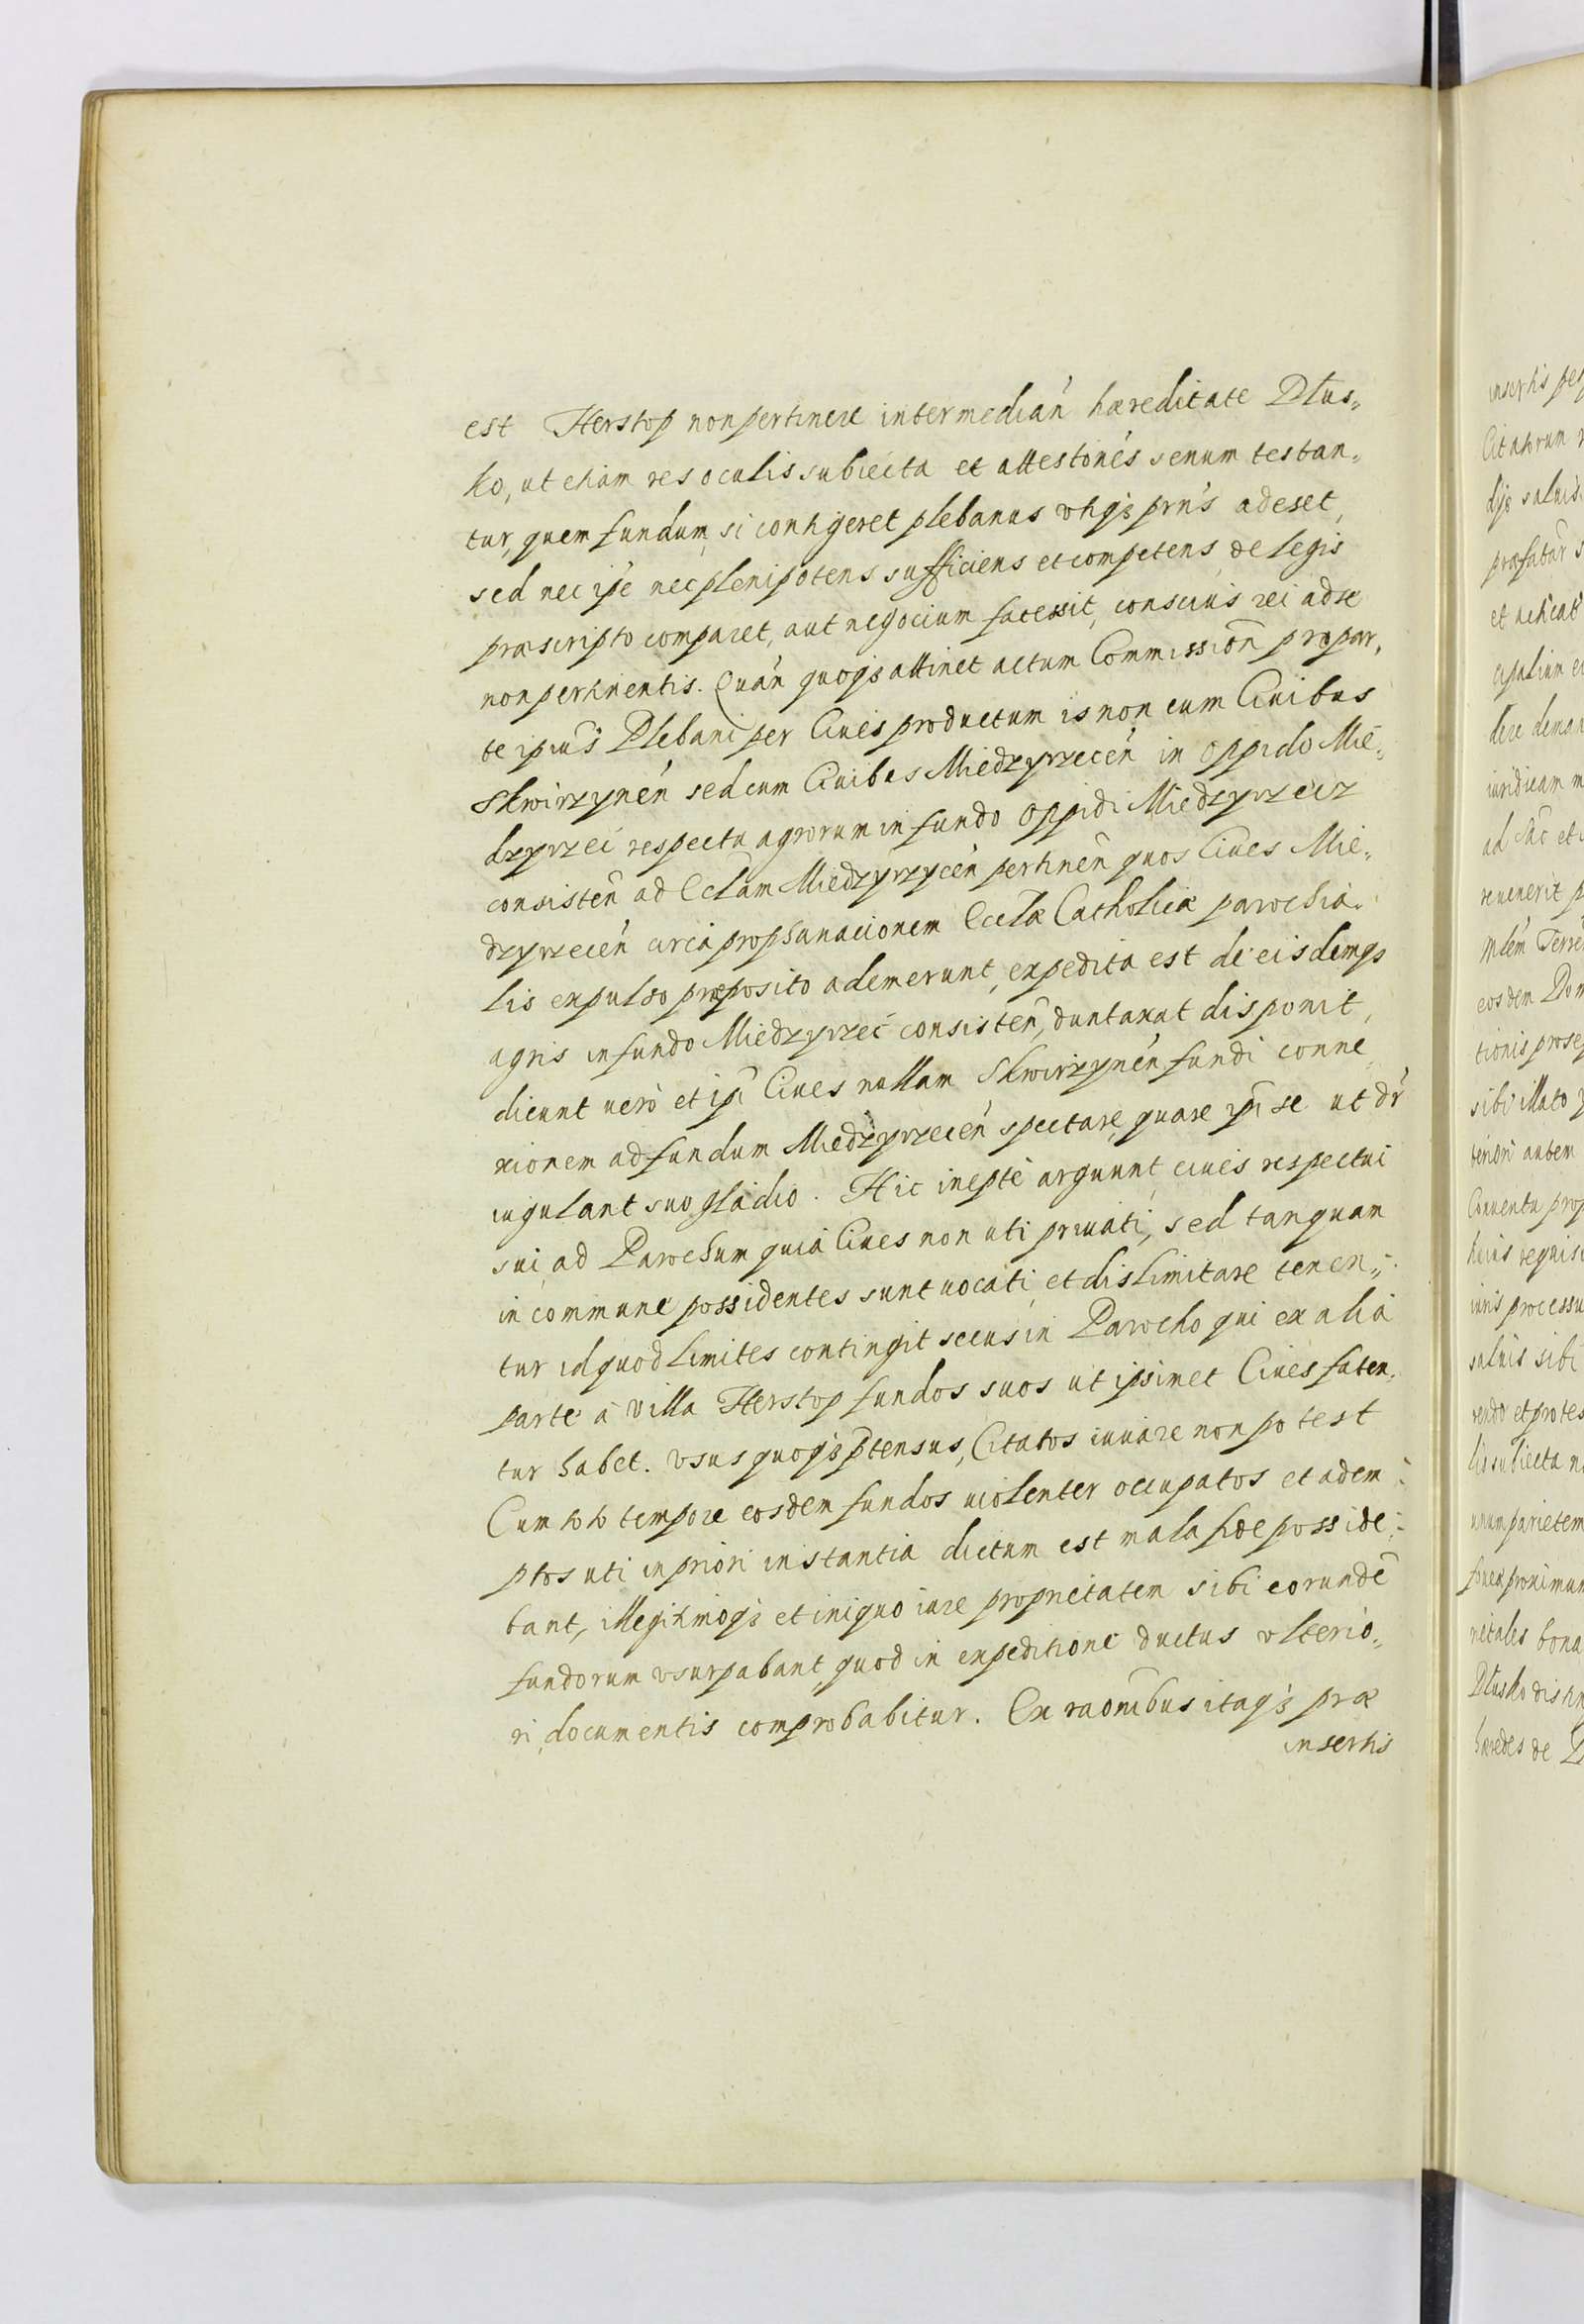 est Herstop non pertinere intermedian̄ hæreditate Plus„
ko, ut etiam res oculis subiecta et attestōnes senum testan„
tur, quem fundum, si contigeret plebanus vtiqз prn̄s adeset,
sed nec ip̄e nec plenipotens sufficiens et competens, de legis
præscripto comparet, aut negocium facessit, conscius rei ad se
non pertinentis. Quan̄ quoqз attinet actum Commission̄ pro par„
te ipius̄ Plebani per Ciues productum is non cum Ciuibus
Skwirzynen̄ sed cum Ciuibus Miedzyrzecen̄ in oppido Mie„
dzyrzeci respectu agrorum in fundo oppidi Miedzyrzecz
consisten̄ ad Ecl̄am Miedzyrzycen̄ pertinen̄ quos Ciues Mie„
dzyrzecen̄ circa prophanacionem Eccl̄æ Catholicæ parochia„
lis expulso præposito ademerunt, expedita est de eisdemqз
agris in fundo Miedzyrzec̄ consisten̄, duntaxat disponit,
dicunt uero et ip̄i Ciues nullam Skwirzynen̄ fundi conne„
xionem ad fundum Miedzyrzecen̄ spectare, quare ip̄i se ut dr̄
iugulant suo gladio. Hic inepte arguunt ciues respectui
sui, ad Parochum quia Ciues non uti priuati, sed tanquam
in commune possidentes sunt uocati, et dislimitare tenen„
tur id quod limites contingit secus in Parocho qui ex alia
parte a villa Herstop fundos suos ut ipsimet Ciues faten„
tur habet. Vsus quoqз p̄tensus, Citatos iuuare non potest
Cum toto tempore eosdem fundos uiolenter occupatos et adem„
ptos uti in priori instantia dictum est mala fide posside„
bant, illegitimoqз et iniquo iure proprietatem sibi eorundē
fundorum vsurpabant, quod in expeditione ductus vlterio„
ri, documentis comprobabitur. Ex raōnibus itaqз præ
insertis